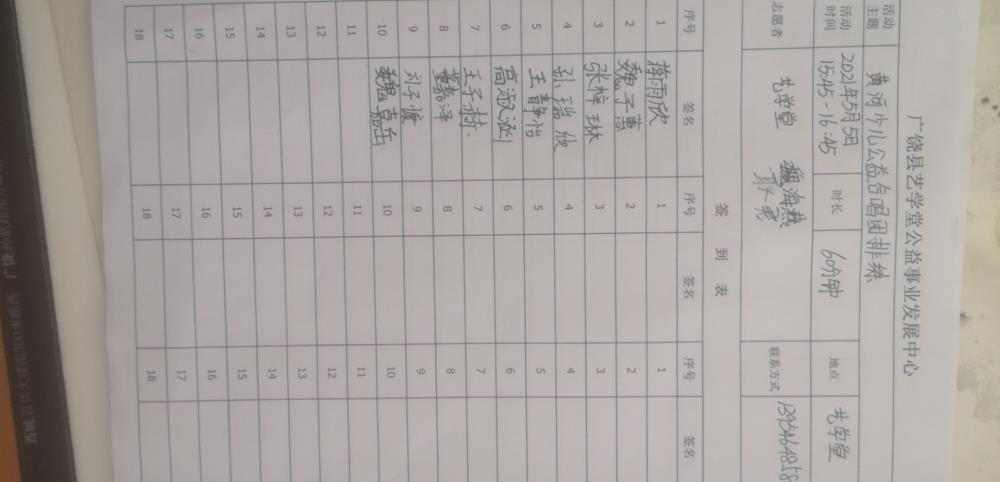 广饶县艺学堂公益事业发展中心
活动主题 黄河少儿公益合唱团排练
活动时间 2021年5月5日 15:45-16:45 时长 60分钟 地点 艺学堂
志愿者 艺学堂 魏海燕 联系方式
签到表
序号 签名 序号 签名 序号 签名
1 蒋雨欣 1 1
2 魏子蕙 2 2
3 张梓琳 3 3
4 孙瑞欣 4 4
5 王静怡 5 5
6 高淑涵 6 6
7 王子赫 7 7
8 董嘉泽 8 8
9 刘子慷 9 9
10 魏嘉岳 10 10
11 11 11
12 12 12
13 13 13
14 14 14
15 15 15
16 16 16
17 17 17
18 18 18